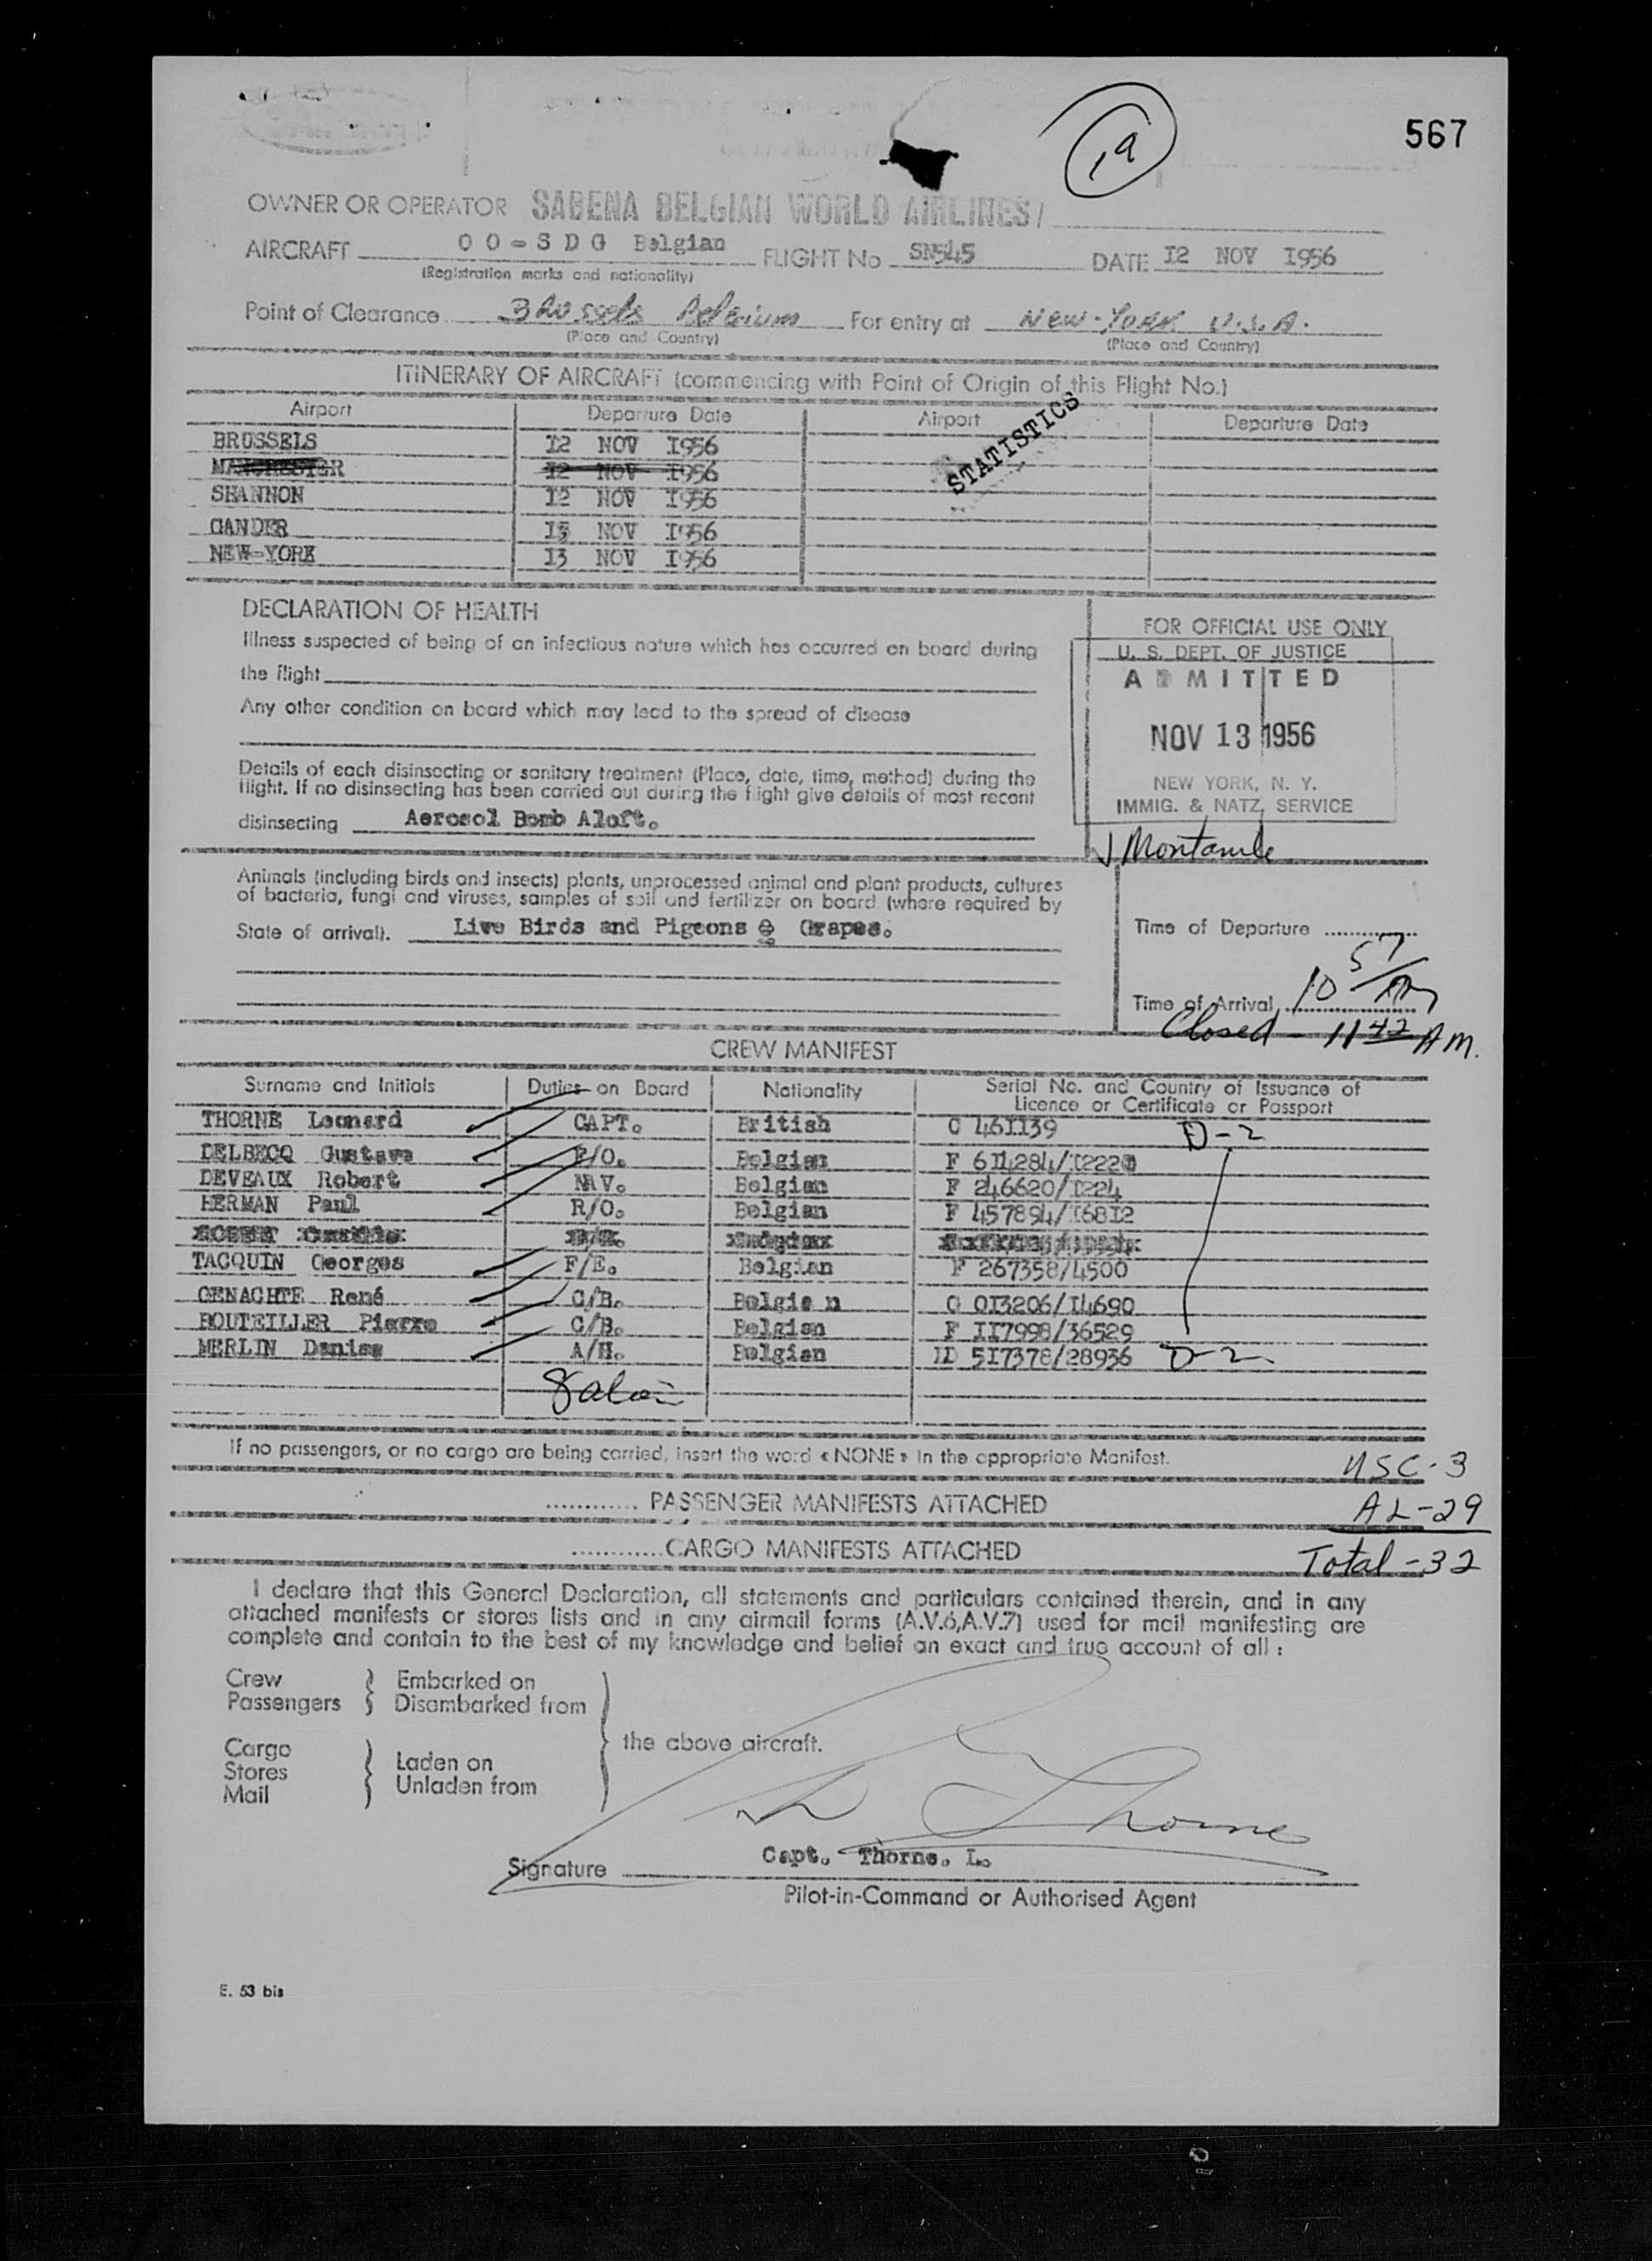 19
567
OWNER OR OPERATOR SABENA BELGIAN WORLD AIRLINES/
AIRCRAFT OO-SDG Belgian FLIGHT No SN545 DATE I2 NOV I956
(Registration marks and nationality)
Point of Clearance Brussels Belgium For entry at New-York U.S.A.
(Place and Country) (Place and Country)
ITINERARY OF AIRCRAFT (commencing with Point of Origin of this Flight No.)
Airport Departure Date Airport Departure Date
STATISTICS
BRUSSELS I2 NOV I956
MANCHESTER I2 NOV I956
SHANNON I2 NOV I956
GANDER I3 NOV I956
NEW-YORK I3 NOV I956
DECLARATION OF HEALTH
Illness suspected of being of an infectious nature which has occurred on board during
the flight
Any other condition on board which may lead to the spread of disease
Details of each disinsecting or sanitary treatment (Place, date, time, method) during the
flight. If no disinsecting has been carried out during the flight give details of most recent
disinsecting Aerosol Bomb Aloft.
FOR OFFICIAL USE ONLY
U. S. DEPT. OF JUSTICE
ADMITTED
NOV 13 1956
NEW YORK, N. Y.
IMMIG. & NATZ. SERVICE
Animals (including birds and insects) plants, unprocessed animal and plant products, cultures
of bacteria, fungi and viruses, samples of soil and fertilizer on board (where required by
State of arrival). Live Birds and Pigeons & Grapes.
Time of Departure
Time of Arrival 10 57 AM
Closed - 11 42 A M.
CREW MANIFEST
Surname and Initials Duties on Board Nationality Serial No. and Country of Issuance of
Licence or Certificate or Passport
THORNE Leonard CAPT. British C 46II39 D-2
DELBECQ Gustave F/O. Belgian F 6I4284/I222
DEVEAUX Robert NAV. Belgian F 246620/I224
HERMAN Paul R/O. Belgian F 457894/I68I2
TACQUIN Georges F/E. Belgian F 267358/4500
GENACHTE René C/B. Belgia n G 0I3206/I4690
BOUTEILLER Pierre C/B. Belgian F II7998/36529
MERLIN Denise A/H. Belgian ID 5I7378/28936 D-2
If no passengers, or no cargo are being carried, insert the word «NONE» in the appropriate Manifest.
USC-3
PASSENGER MANIFESTS ATTACHED
AL-29
CARGO MANIFESTS ATTACHED
Total-32
I declare that this General Declaration, all statements and particulars contained therein, and in any
attached manifests or stores lists and in any airmail forms (A.V.6,A.V.7) used for mail manifesting are
complete and contain to the best of my knowledge and belief an exact and true account of all :
Crew Embarked on
Passengers Disembarked from
the above aircraft.
Cargo
Stores Laden on
Mail Unladen from
L Thorne
Capt. Thorne. L.
Signature
Pilot-in-Command or Authorised Agent
E. 53 bis